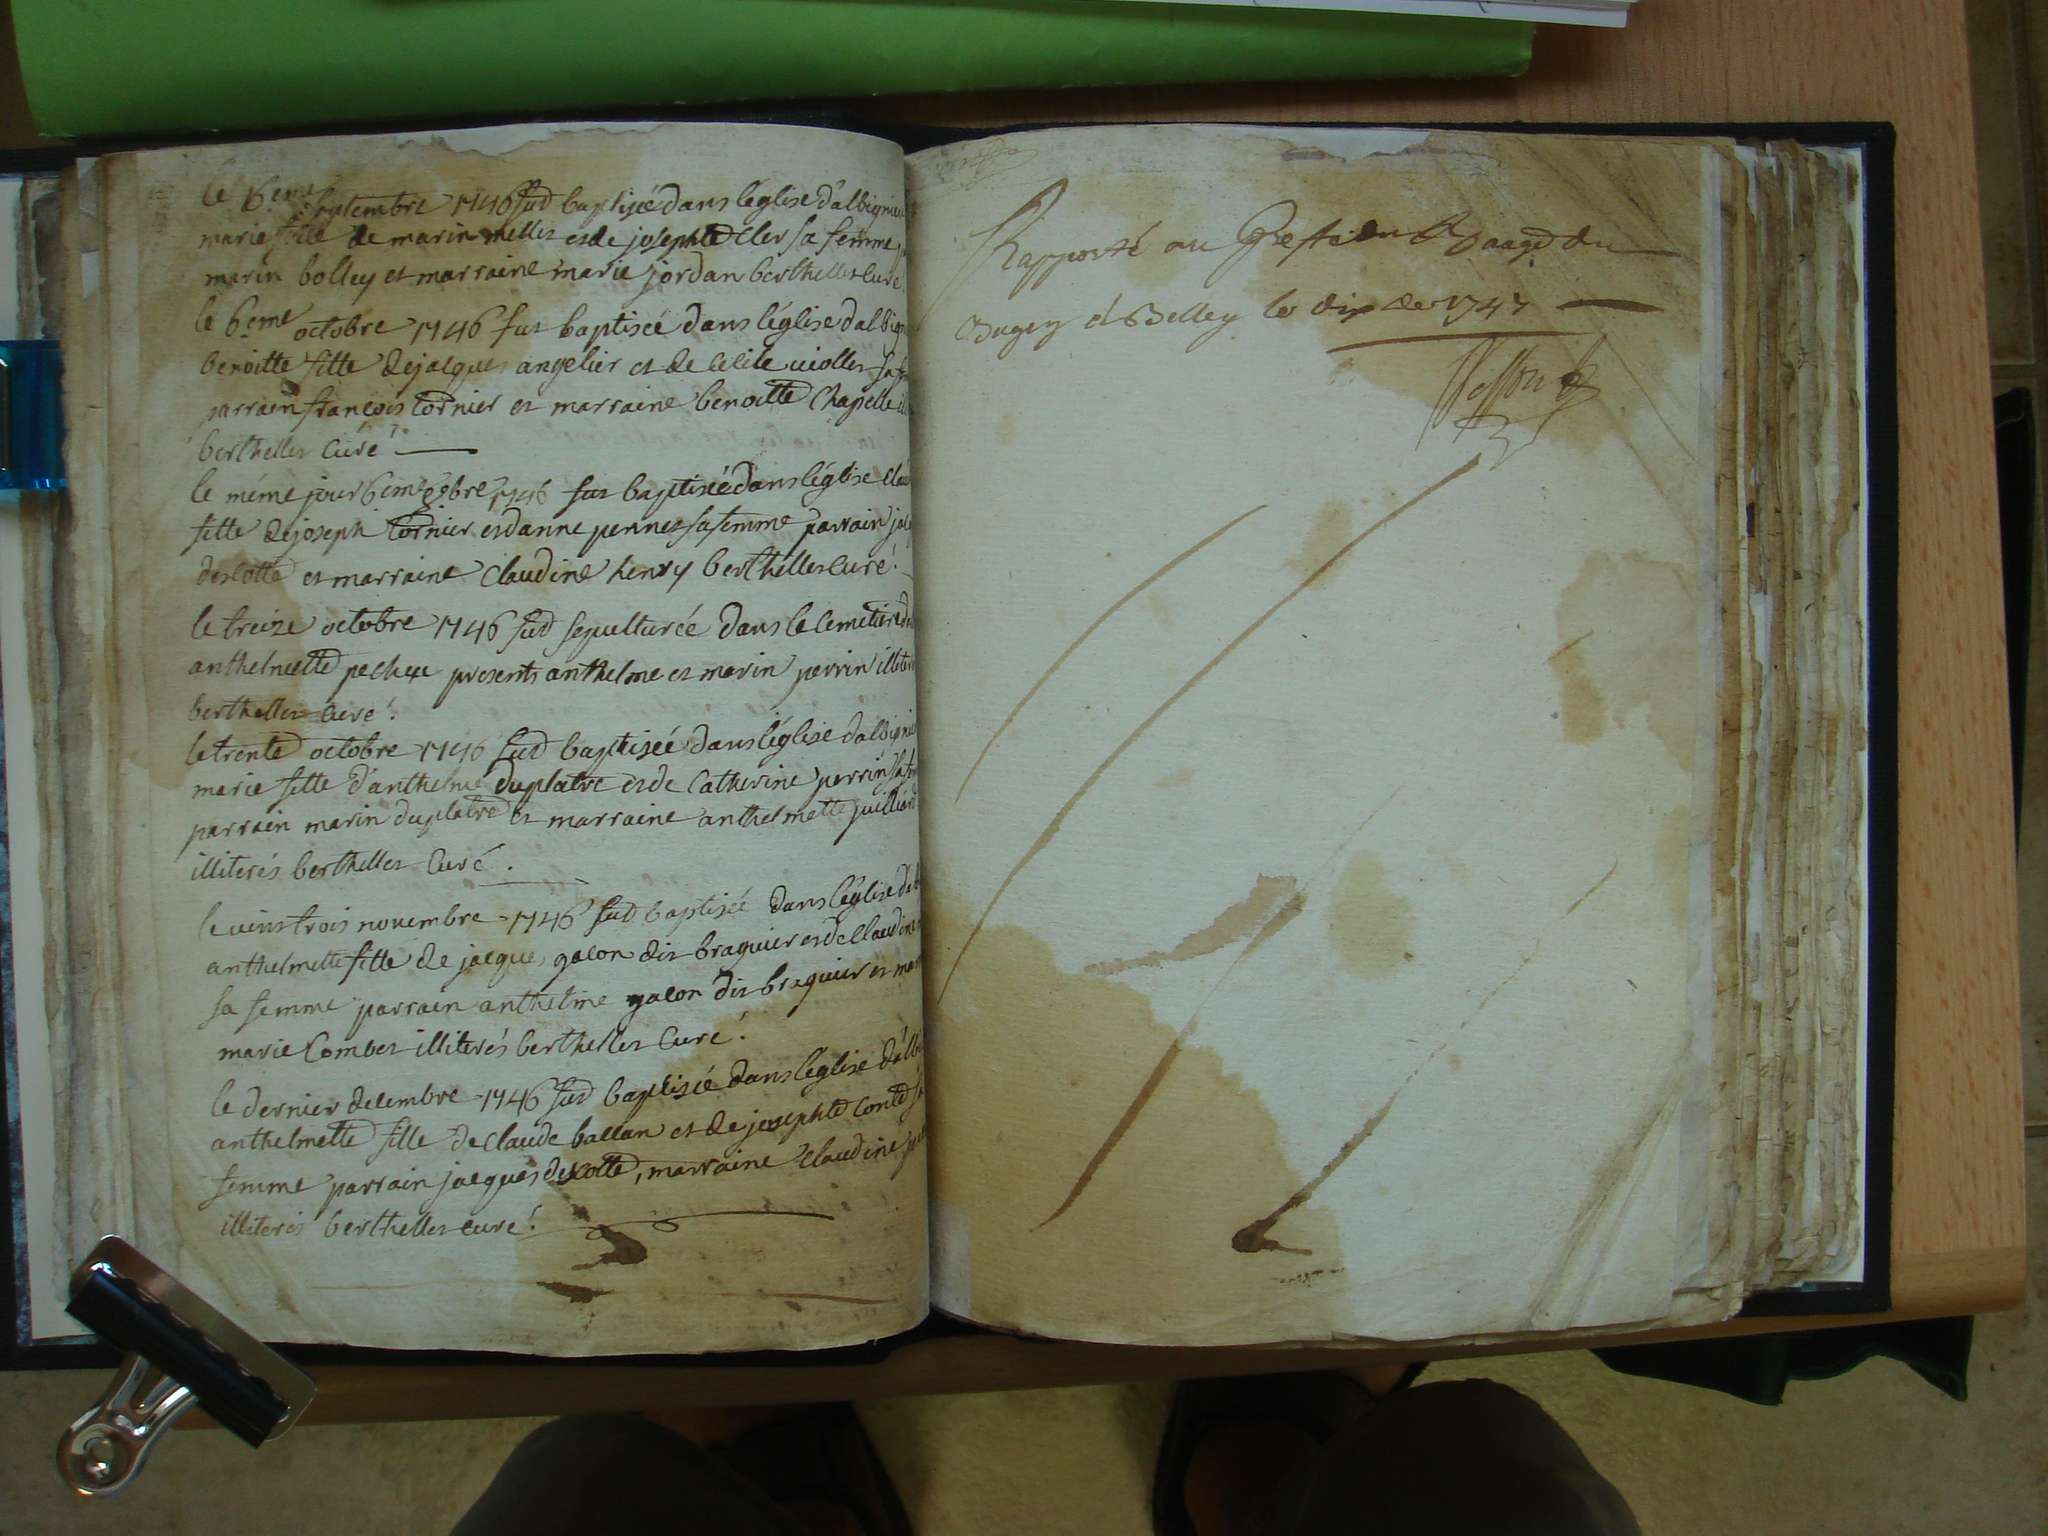 le 6eme septembre 1746 fut baptisée dans léglise dalbignieu
marie fille de marin mellet et de josephte cler sa femme
marin bolley et marraine marie jordan berthellet curé
le 6eme octobre 1746 fut baptiseé dans léglise dalbign
benoitte fille de jacques angelier et de cecile violler sa f
parrain françois tornier et marraine benoitte Chapelle
berthellet curé
le méme jour 6eme 8bre 1746 fut baptiseé dans léglise Clau
fille de joseph tornier et danne pennet sa femme parrain ja
descotte et marraine Claudine henry berthellet curé
le treize octobre 1746 fut sepulturée dans le Cemetiere d
anthelmette pecheu presents anthelme et marin perrin illiter
berthellet curé
le trente octobre 1746 fut baptiseé dans léglise dalbignieu
marie fille d'anthelme duplatre et de Catherine perrin sa fem
parrain marin duplatre et marraine anthelmette juilliard
illiterés berthellet Curé
le vins trois novembre 1746 fut baptiseé dans léglise dalb
anthelmette fille de jacques galon dit braquier et de Claudine
sa femme parrain anthelme galon dit braquier et mar
marie Combet illiterés berthellet Curé
le dernier decembre 1746 fut baptiseé dans léglise d'alb
anthelmette fille de claude ballan et de josephte conte sa
femme parrain jacques descotte, marraine Claudine
illiterés berthellet curé
Rapporté au Greffe du Baage du
Bugey à Belley le dix 1747